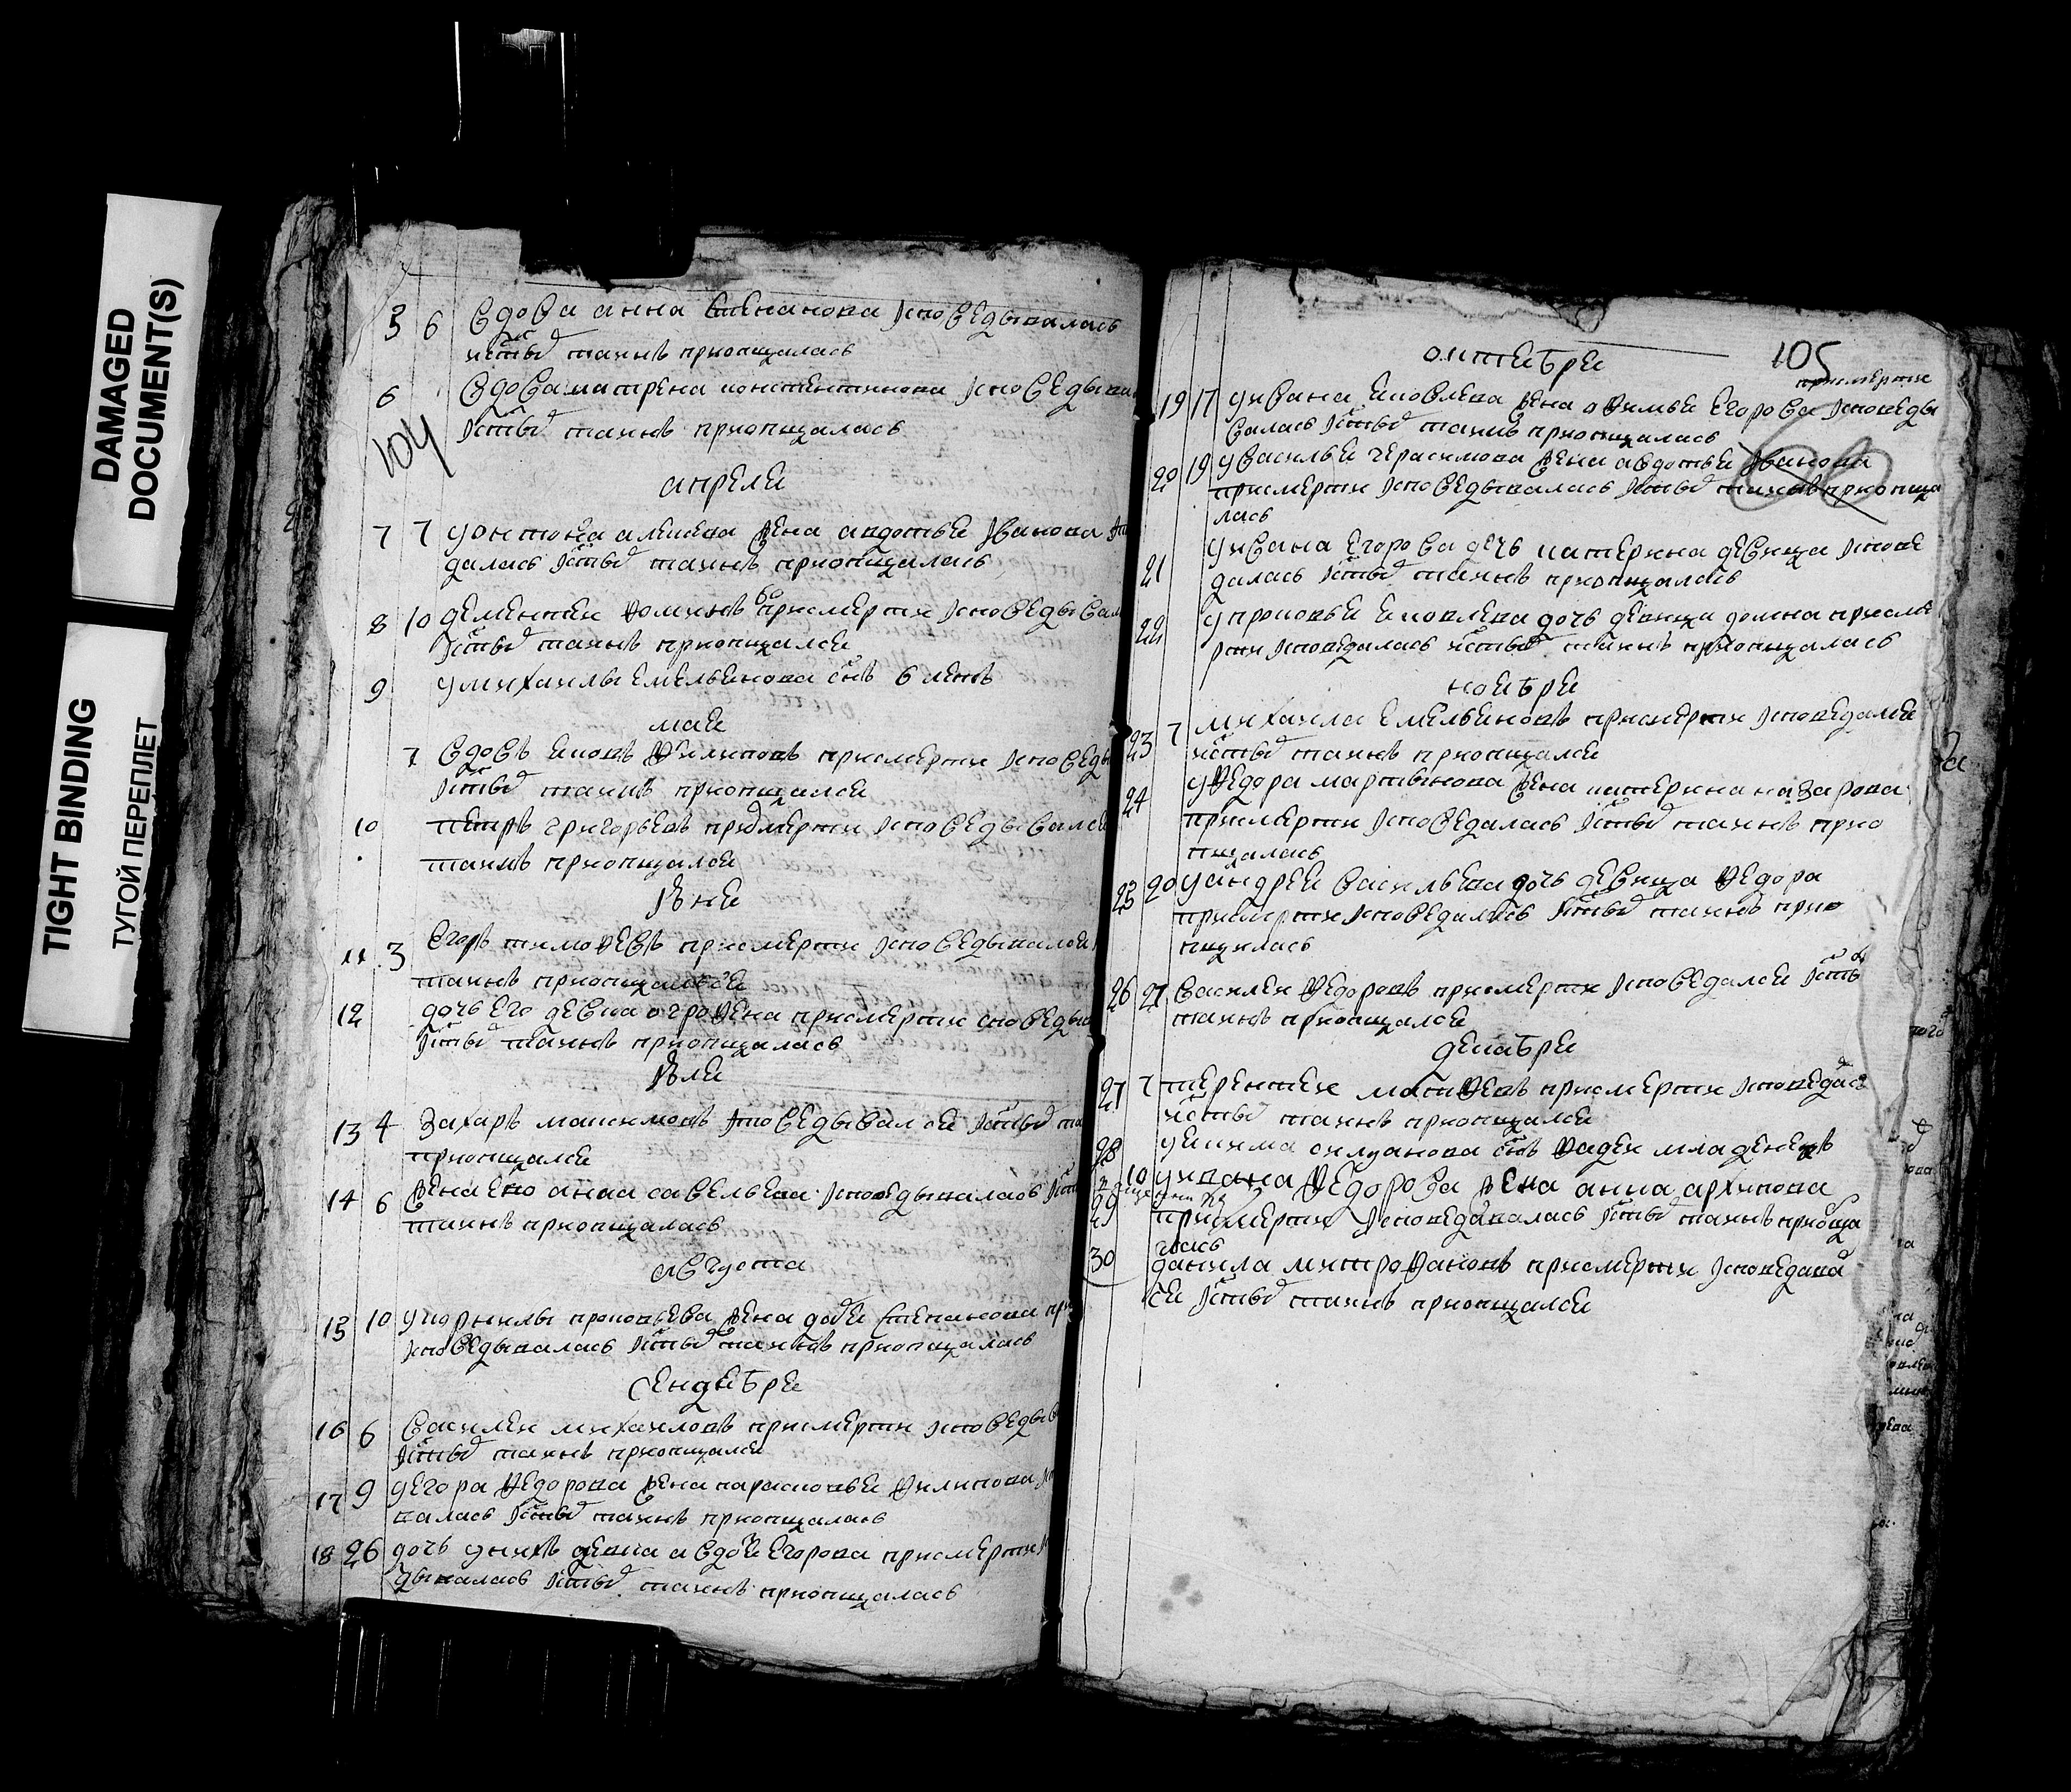 DAMAGED
DOCUMENT(S)
TIGHT BINDING
ТУГОЙ ПЕРЕПЛЕТ
5 6 вдова анна степанова исповедывалась
истых таинъ приопщалась
6 вдова матрена констентинова исповедыва
истых таинъ приопщалась
104
апреля
7 7 у онтона алѣѣва жена авдотья иванова
далась истых таинъ приопщалась
8 10 дементеи фоминъ присмерти исповедывал
истых таинъ приопщался
9 у михаилы емельянова снъ 6 летъ
мая
7 вдовъ яковъ филиповъ присмерти исповеды
истых таинъ приопщался
10 петръ григорьевъ присмерти исповедывался
таинъ приопщался
июня
11 3 егоръ тимофеевъ присмерти исповедывался
таинъ приопщался
12 дочь его девица огрофена присмерти споведыв
истых таинъ приопщалась
июля
13 4 захаръ максимовъ исповедывался истых та
приопщался
14 6 жена ево анна савельева исповедывалась ист
таинъ приопщалась
августа
15 10 у корнилы прокопьева жена степанова пр
исповедывалась истых таинъ приопщалась
сендебря
16 6 василеи михаиловъ присмерти исповедыв
истых таинъ приопщался
17 9 у егора федорова жена парасковья филипова
валась истых таинъ приопщалась
18 26 дочь у нихъ девка авдотя егорова присмерти
дывалась истых таинъ приопщалась
октебря
105
присмерти
19 17 у ивана яковлева жена офимья егорова исповеды
валась истых таинъ приопщалась
20 19 у василья герасимова жена авдотья иванова
присмерти исповедывалась истых таинъ приопща
лась
21 у ивана егорова дочь катерина девица испове
далась истых таинъ приопщалась
22 у прокофья яковлева дочь девица домна присме
рти исповедалась истых таинъ приопщалась
ноября
23 7 михаила емельяновъ присмерти исповедался
истых таинъ приопщался
24 у федора мартынова жена катерина назарова
присмерти исповедалась истых таинъ прио
пщалась
25 20 у андрея васильева дочь девица федора
присмерти исповедалась истых таинъ прио
пщилась
26 27 василеи федоровъ присмерти исповедался истых
таинъ приопщался
декабря
27 7 терентеи матфеевъ присмерти исповедал
истых таинъ приопщался
28 у якима силуанова снъ фадеи младенецъ
10 у ивана федорова жена анна архипова
29 присмерти исповедавалась истых таинъ приопща
лась
30 данила митрофановъ присмерти исповедава
ся истых таинъ приопщался